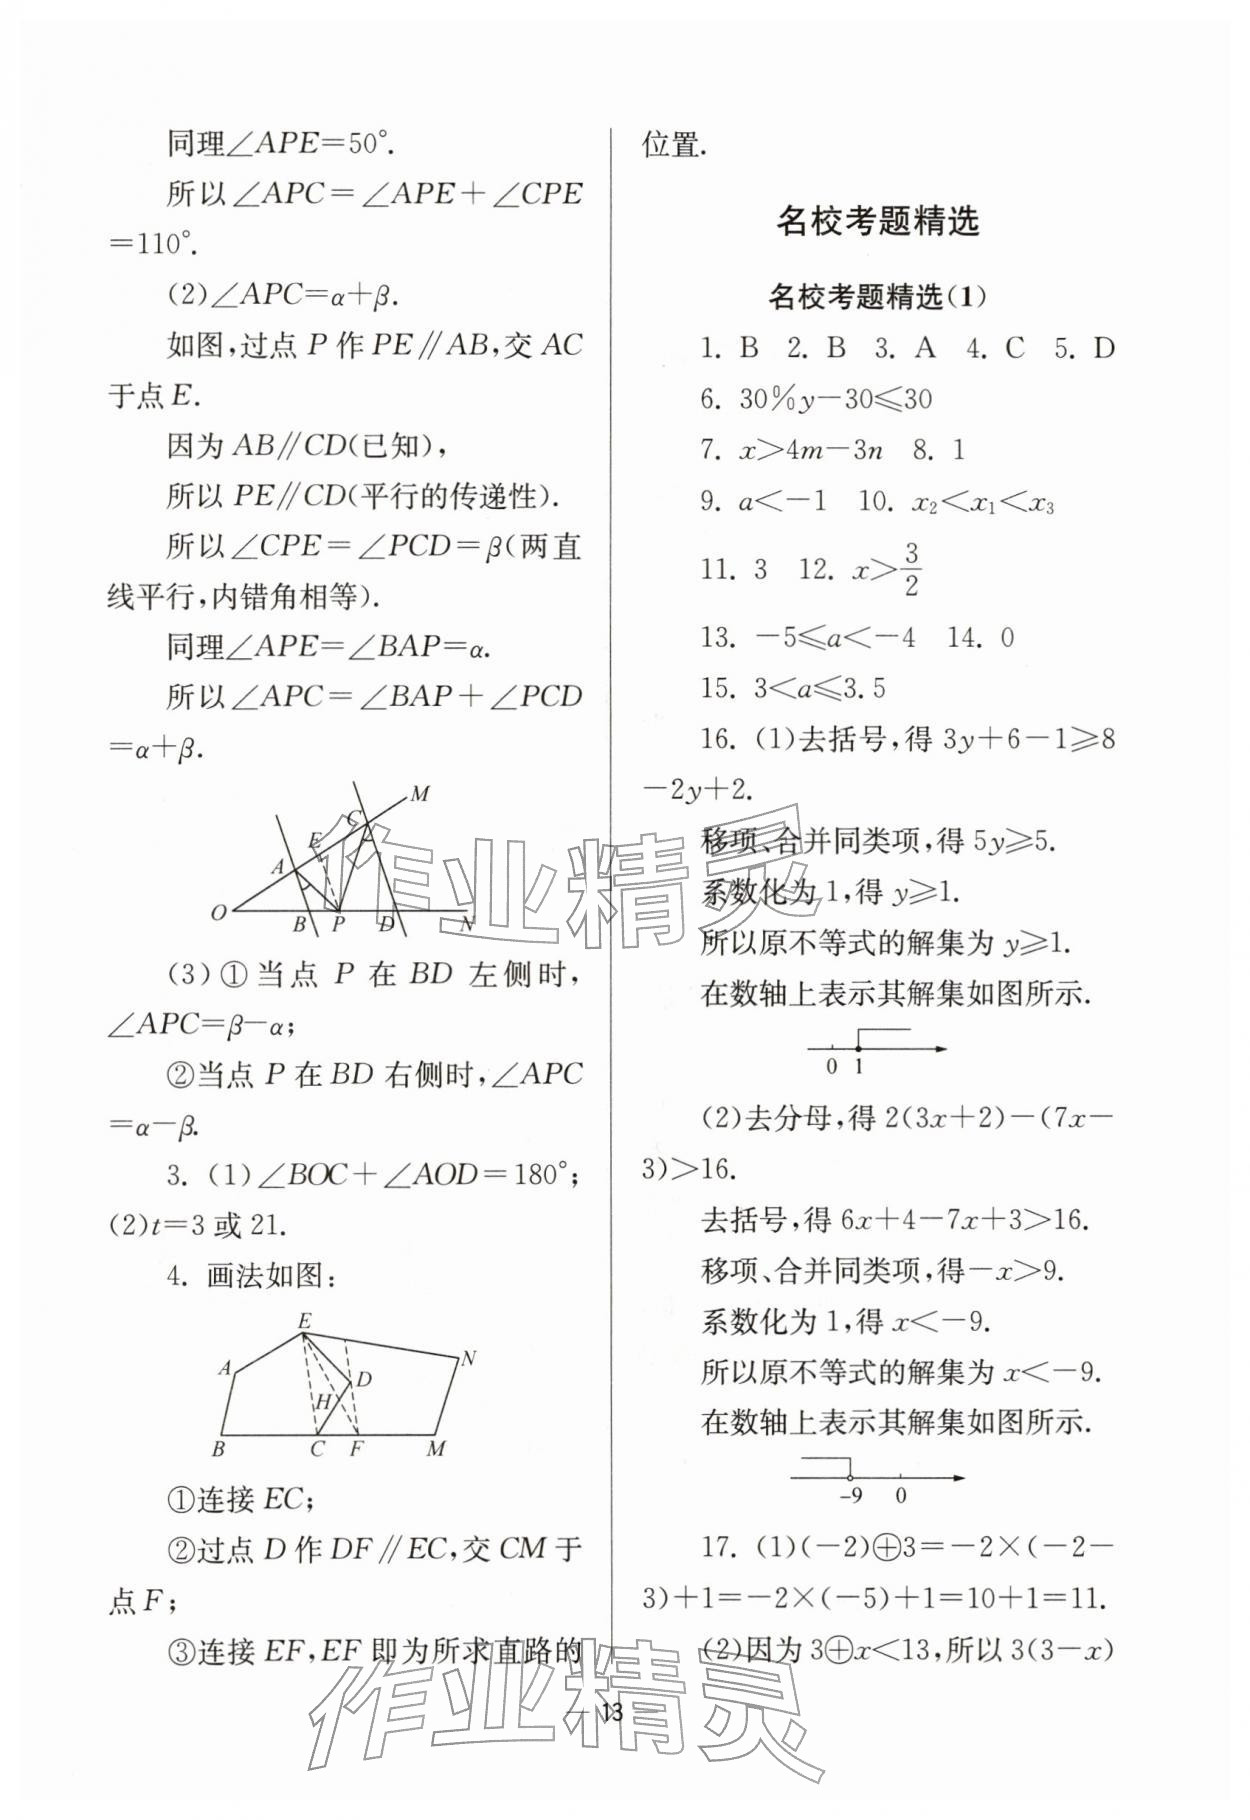 同理∠APE=50°.
所以∠APC=∠APE+∠CPE
=110°.
(2)∠APC=α+β.
如图,过点 P 作 PE∥AB,交 AC
于点 E.
因为 AB∥CD(已知),
所以 PE∥CD(平行的传递性).
所以∠CPE=∠PCD=β(两直
线平行,内错角相等).
同理∠APE=∠BAP=α.
所以∠APC=∠BAP+∠PCD
=α+β.
M
C
E
A
O B P D N
(3)①当点 P 在 BD 左侧时,
∠APC=β-α;
②当点 P 在 BD 右侧时,∠APC
=α-β.
3. (1)∠BOC+∠AOD=180°;
(2)t=3 或 21.
4. 画法如图:
E
N
A
D
H
B C F M
①连接 EC;
②过点 D 作 DF∥EC,交 CM 于
点 F;
③连接 EF,EF 即为所求直路的
位置.
名校考题精选
名校考题精选(1)
1. B 2. B 3. A 4. C 5. D
6. 30%y-30≤30
7. x>4m-3n 8. 1
9. a<-1 10. x₂<x₁<x₃
11. 3 12. x>3/2
13. -5≤a<-4 14. 0
15. 3<a≤3.5
16. (1)去括号,得 3y+6-1≥8
-2y+2.
移项、合并同类项,得 5y≥5.
系数化为 1,得 y≥1.
所以原不等式的解集为 y≥1.
在数轴上表示其解集如图所示.
0 1
(2)去分母,得 2(3x+2)-(7x-
3)>16.
去括号,得 6x+4-7x+3>16.
移项、合并同类项,得-x>9.
系数化为 1,得 x<-9.
所以原不等式的解集为 x<-9.
在数轴上表示其解集如图所示.
-9 0
17. (1)(-2)⊕3=-2×(-2-
3)+1=-2×(-5)+1=10+1=11.
(2)因为 3⊕x<13,所以 3(3-x)
— 13
作业精灵
作业精灵